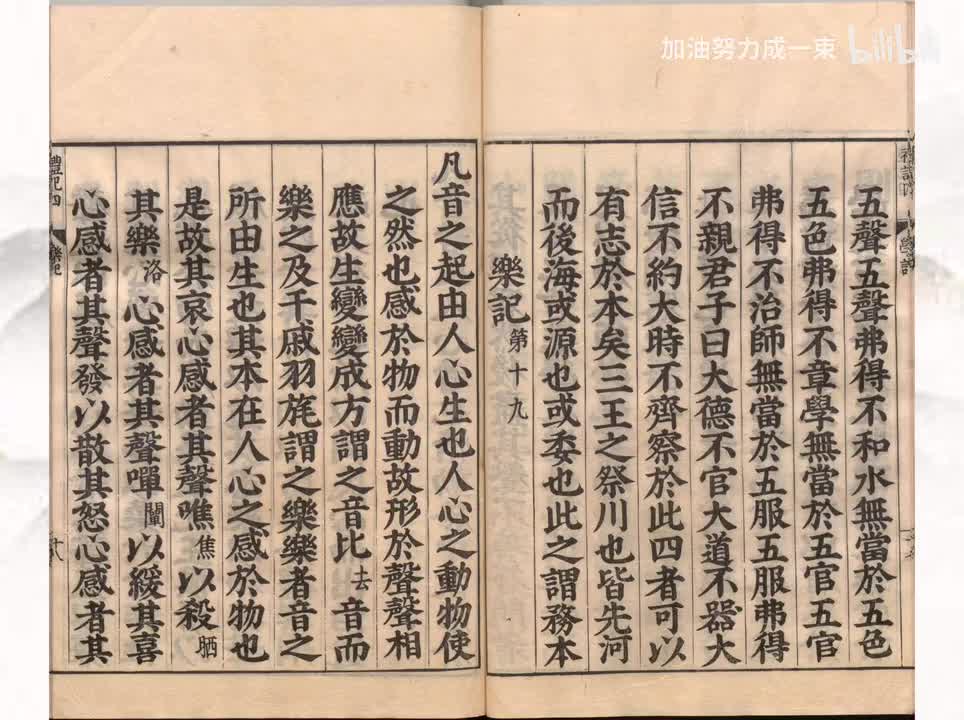 加油努力成一束 bilibili
五聲五聲弗得不和水無當於五色
五色弗得不章學無當於五官五官
弗得不治師無當於五服五服弗得
不親君子曰大德不官大道不器大
信不約大時不齊察於此四者可以
有志於本矣三王之祭川也皆先河
而後海或源也或委也此之謂務本
樂記第十九
凡音之起由人心生也人心之動物使
之然也感於物而動故形於聲聲相
應故生變變成方謂之音比去音而
樂之及干戚羽旄謂之樂樂者音之
所由生也其本在人心之感於物也
是故其哀心感者其聲噍焦以殺晒
其樂洛心感者其聲嘽闡以緩其喜
心感者其聲發以散其怒心感者其
禮記四 樂記 十八